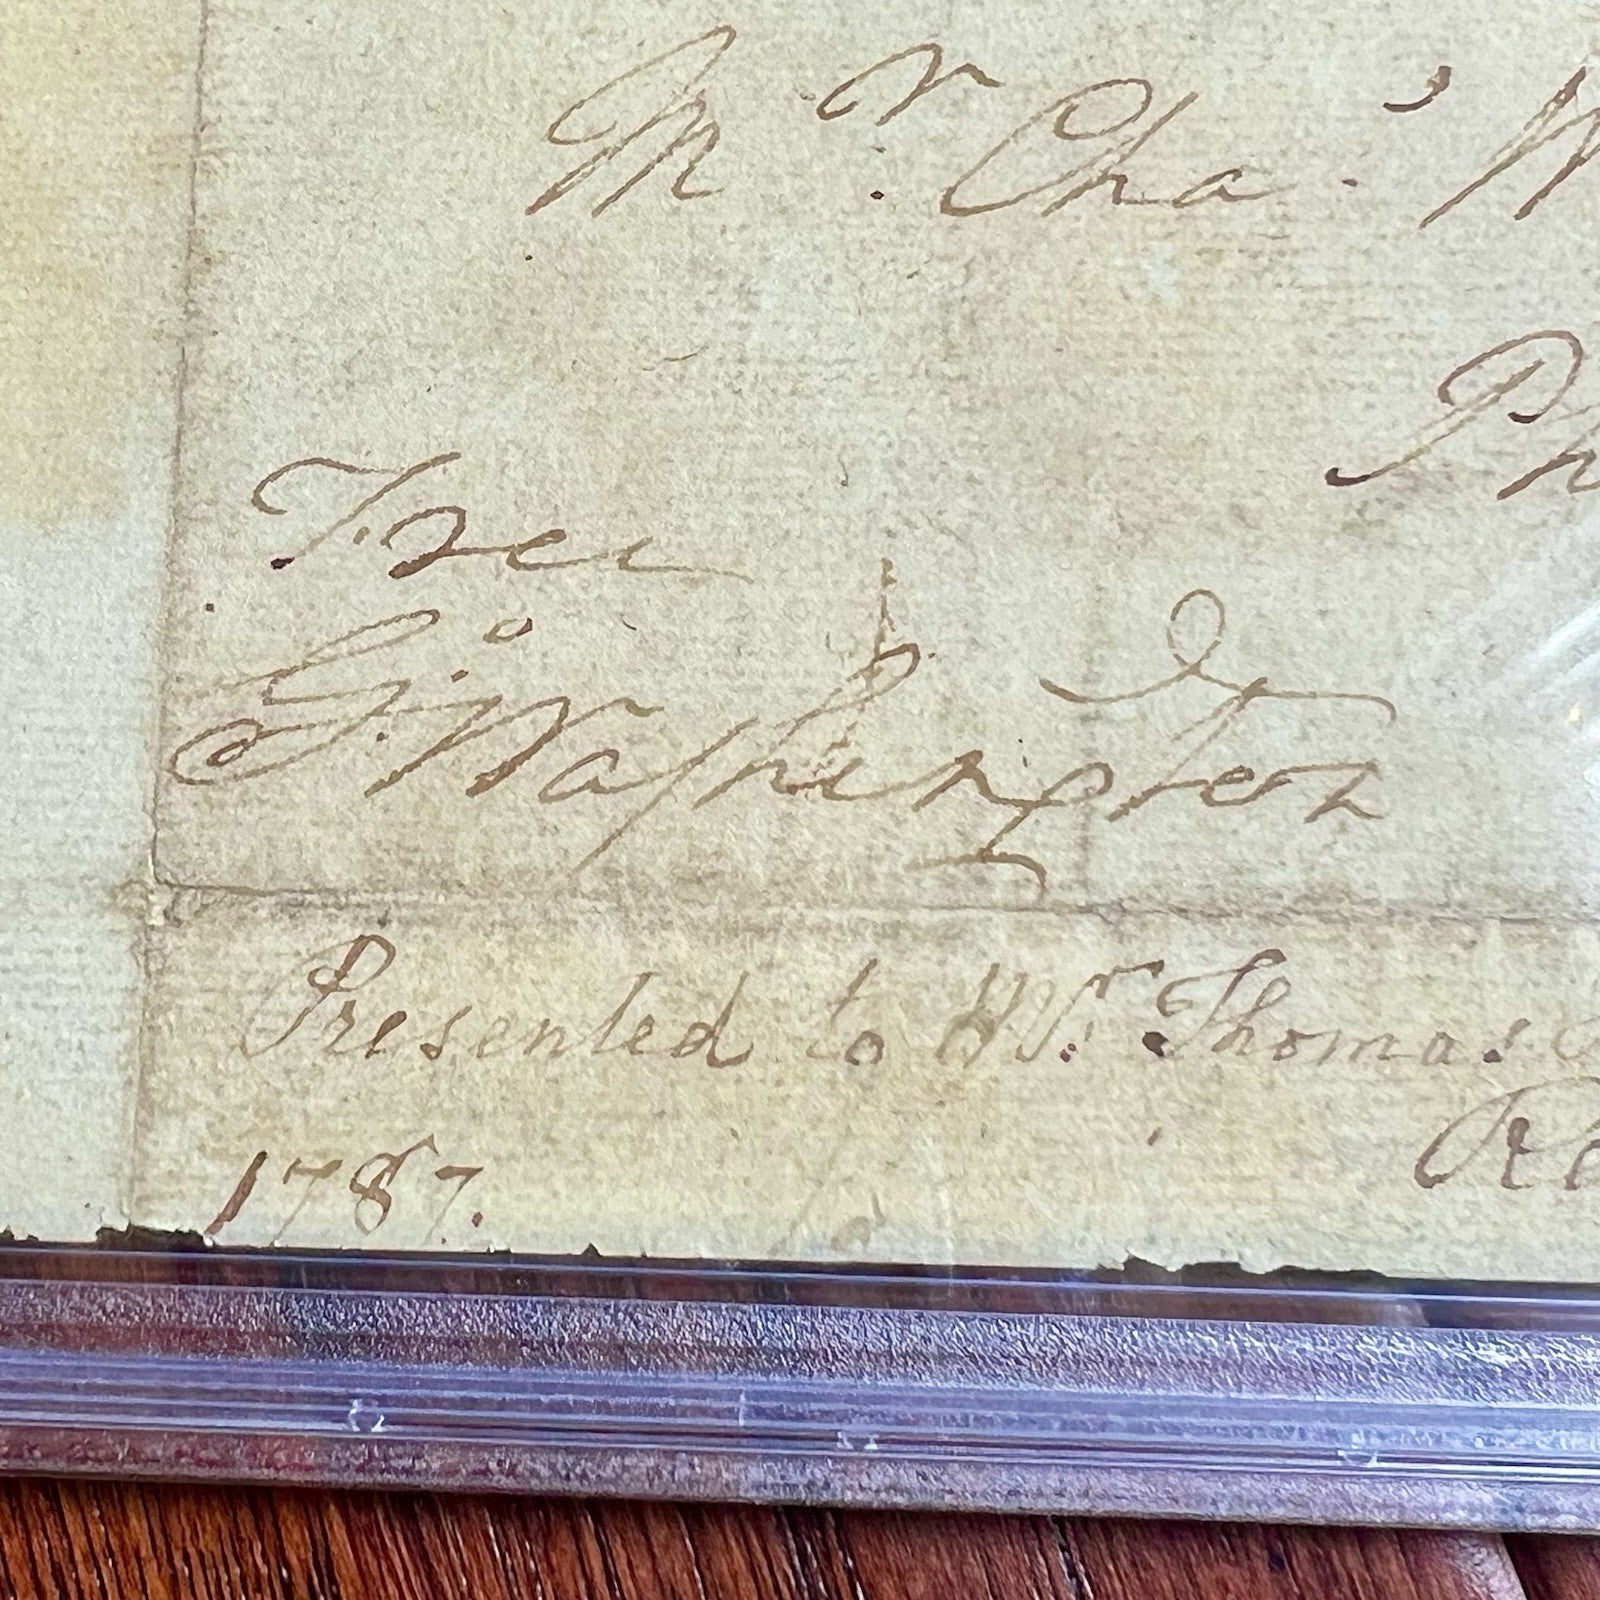 Mr. Chas. W
Ph
Free
Go: Washington
Presented to Mr. Thomas
Re
1787.